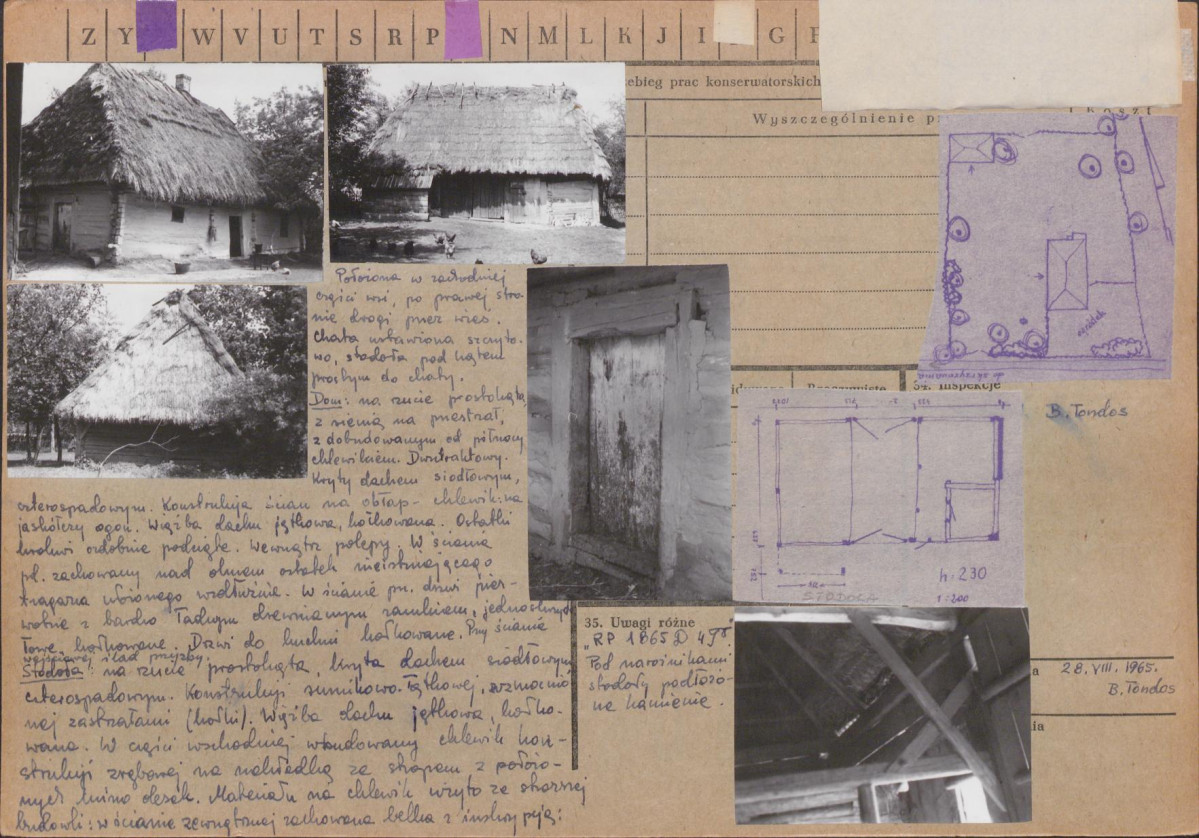 Z Y W V U T S R P N M L K J I G F
ebieg prac konserwatorskich
Wyszczególnienie p
Położona w zachodniej
części wsi, po prawej stro-
nie drogi przez wieś.
Chata ustawiona szczyto-
wo, stodoła pod kątem
prostym do chaty.
Dom: na rzucie prostokąta,
z sienią na przestrzał,
z dobudowanym od północy
chlewikiem. Dwutraktowy.
Kryty dachem siodłowym,
czterospadowym. Konstrukcja ścian na obłap- chlewik: na
jaskółczy ogon. Więźba dachu jętkowa, kołkowana. Ostatki
krokwi ozdobnie podcięte. Wewnątrz polepy. W ścianie
pd. zachowany nad oknem ostatek nieistniejącego
tragarza wbitego wzdłużnie. W ścianie pn. drzwi pier-
wotne z bardzo ładnym drewnianym zamkiem, jednoskrzydł
łowe, kołkowane. Drzwi do kuchni kołkowane. Przy ścianie
wejściowej ślad przyzby.
Stodoła: na rzucie prostokąta, kryta dachem siodłowym
czterospadowym. Konstrukcji sumikowo-łątkowej, wzmocnio
nej zastrzałami (kołki). Więźba dachu jętkowa, kołko-
wana. W części wschodniej wbudowany chlewik kon-
strukcji zrębowej na nakładkę ze stropem z położo-
nych luźno desek. Materiału na chlewik użyto ze starszej
budowli: w ścianie zewnętrznej zachowana belka z inskrypcją:
ogródek
do skrzyżowania
34. Inspekcje
B. Tondos
STODOŁA
h: 230
1:200
35. Uwagi różne
"RP 1865 D 4
Pod narożnikami
stodoły podłożo-
ne kamienie.
28. VIII. 1965.
B. Tondos